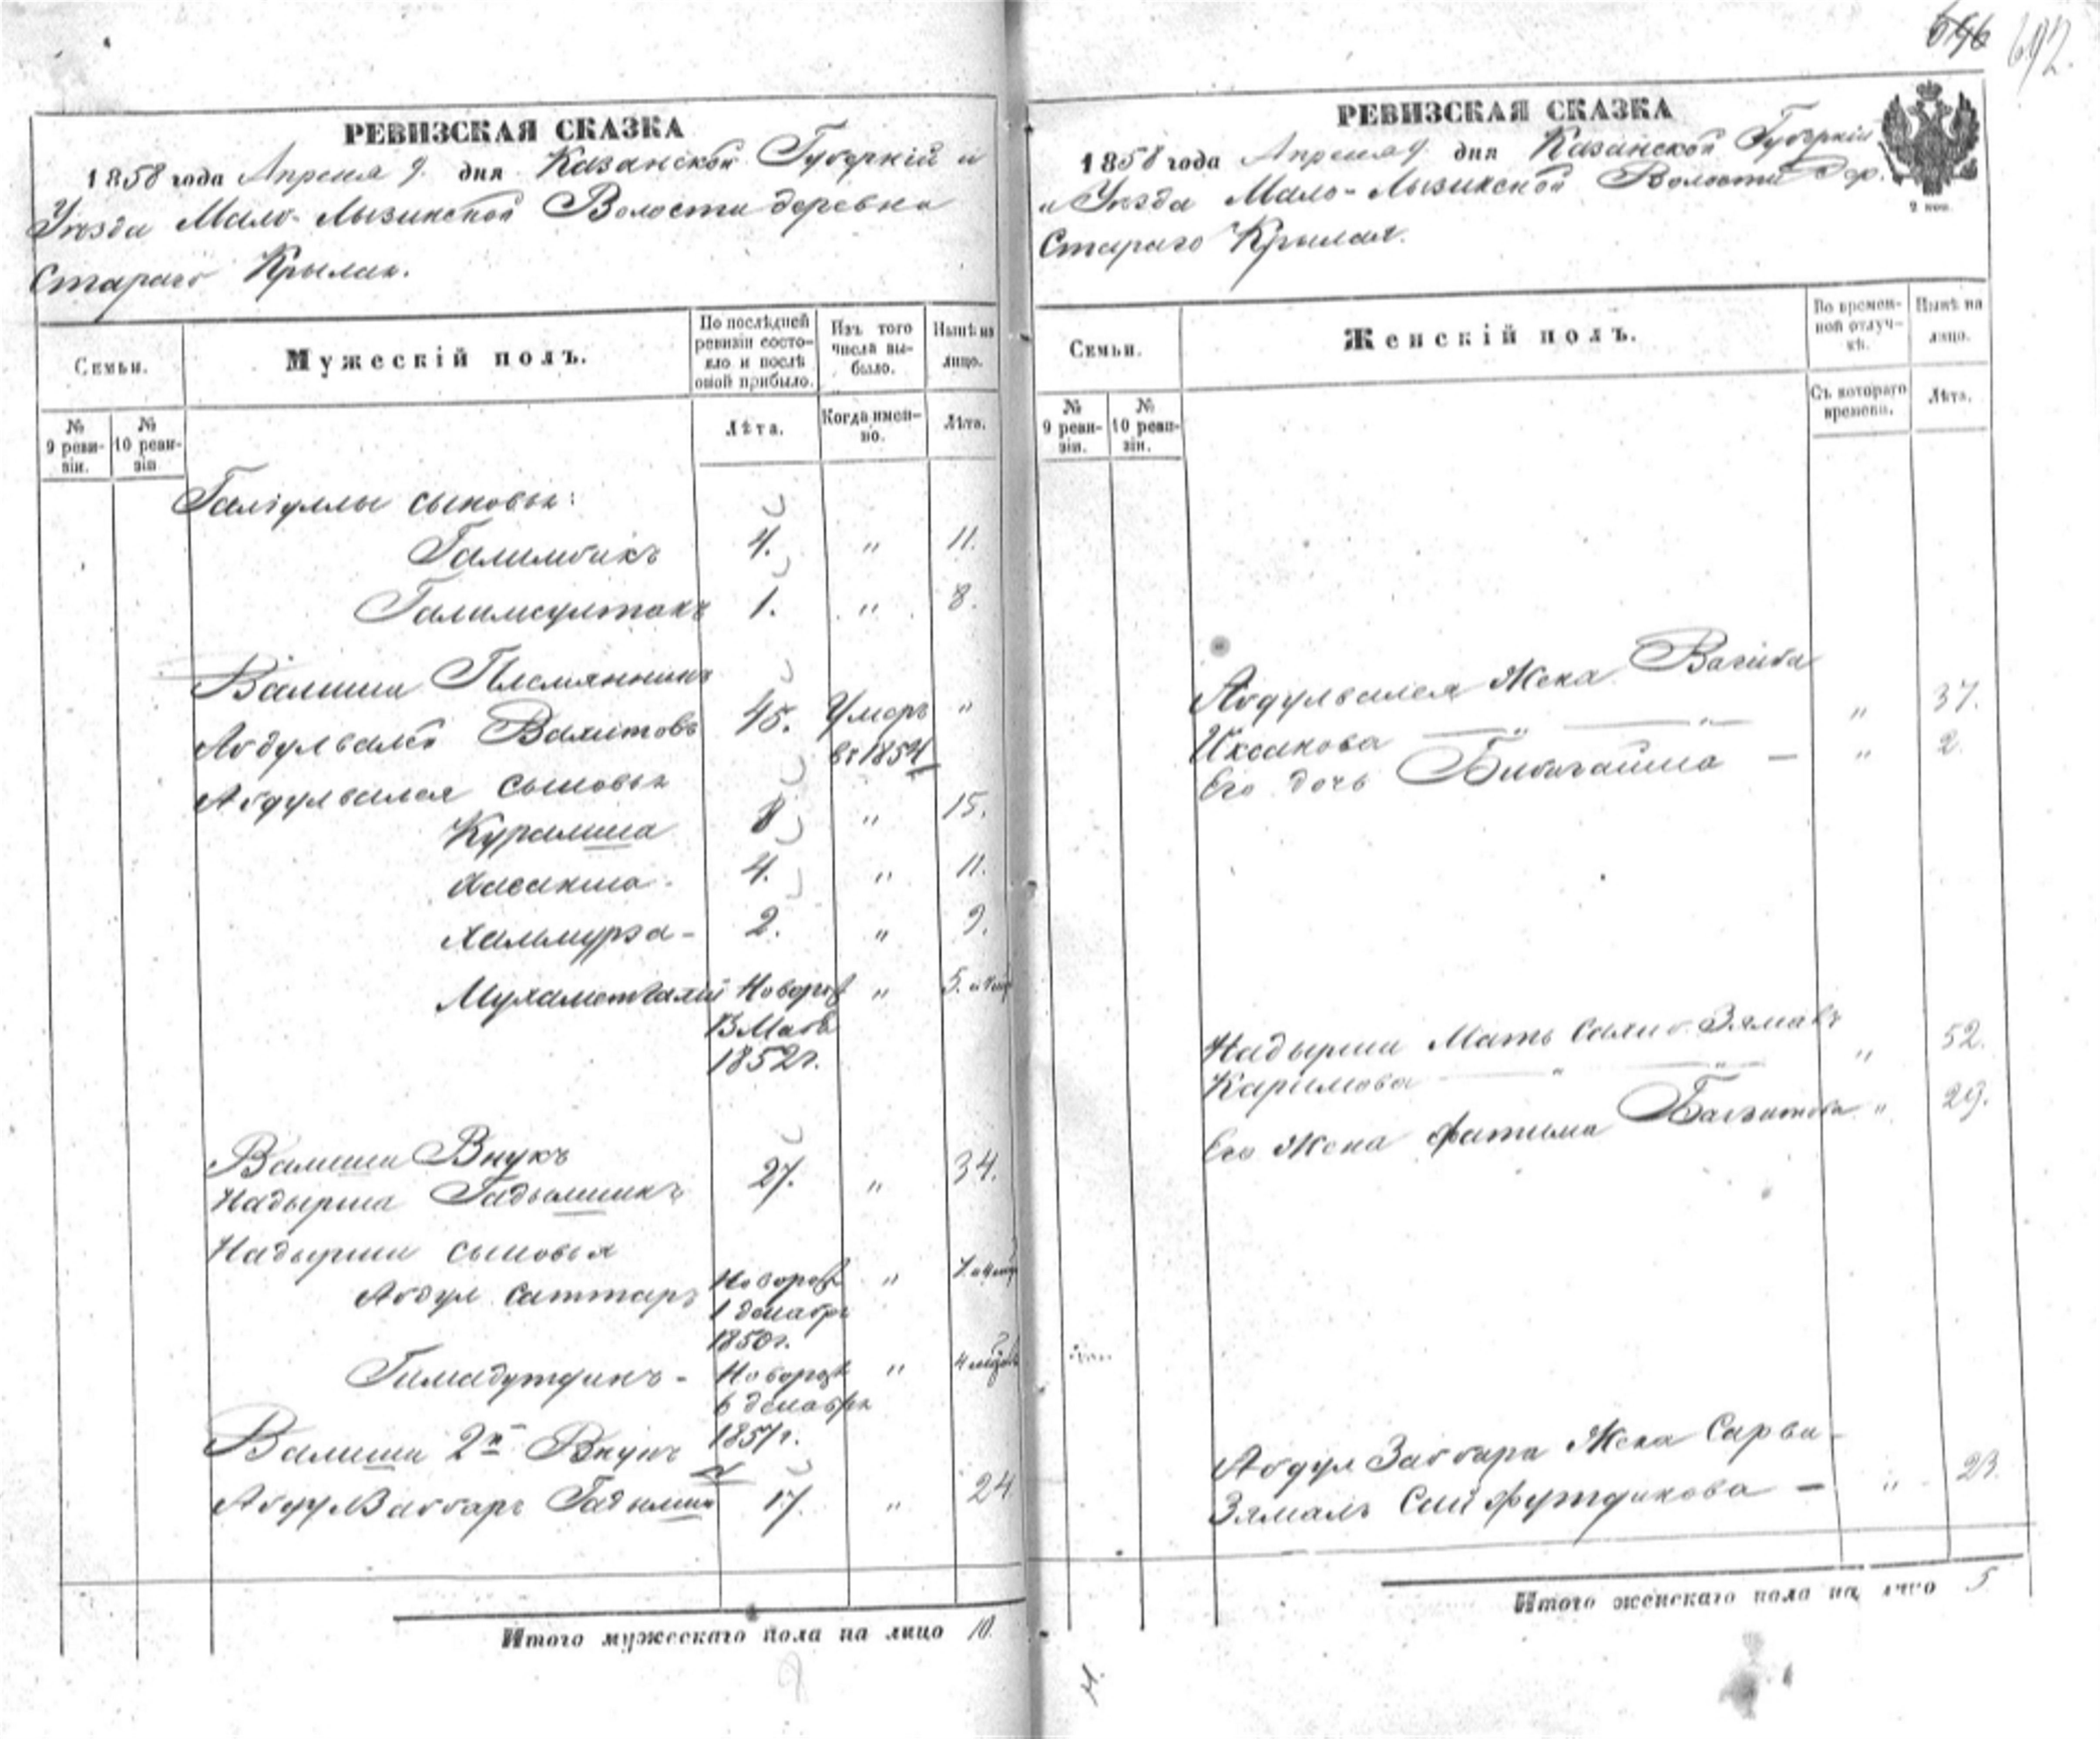 646 692.
РЕВИЗСКАЯ СКАЗКА
1858 года Апреля 9. дня Казанской Губерній и
Уезда Мало-Лызинской Волости деревня
Стараго Крылая.
Семьи.
Мужескій полъ.
По послѣдней ревизіи состояло и послѣ оной прибыло.
Изъ того числа выбыло.
Нынѣ на лицо.
№ 9 ревизіи.
№ 10 ревизіи
Лѣта.
Когда именно.
Лѣта.
Галіуллы сыновья:
Галимбакъ 4. " 11.
Галимсултанъ 1. " 8.
Валиши Племянникъ
Абдулвалей Вахитовъ 45. Умеръ въ 1854 "
Абдулвалея сыновья
Куралша 8 " 15.
Хасанша. 4. " 11.
Халмурза - 2. " 9.
Мухаметвалий Новорож "
В Маѣ
1852г.
Валиши Внукъ
Надырша Гадылшинъ 27. " 34.
Надырши сыновья
Абдул саттаръ Новорож "
1 декабря
1850г.
Гимадутдинъ - Новорож "
6 декабря
1857г.
Валиши 2й Внукъ
Абдул Заббаръ Гадылши 17. " 24
Итого мужескаго пола на лицо 10.
РЕВИЗСКАЯ СКАЗКА
1858 года Апреля 9. дня Казанской Губерніи
и Уезда Мало-Лызинской Волости Дер.
Стараго Крылая.
2 коп.
Семьи.
Женскій полъ.
Во временной отлучкѣ.
Нынѣ на лицо.
№ 9 ревизіи.
№ 10 ревизіи.
Съ котораго времени.
Лѣта.
Абдулвалея Жена Вагиба
Ихсанова " " " 37.
Его дочь Бибигайша — " 2.
Надырши Мать Салиб. Зямалъ
Каримова " " " 52.
Его Жена Фатима " 29.
Абдул Заббара Жена Сарви-
Зямалъ Сайфутдинова — " 23.
Итого женскаго пола на лицо 5